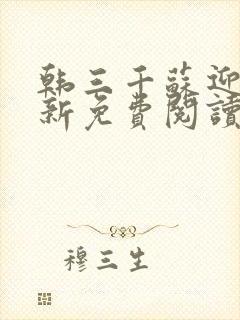 韩三千蘇迎
新免費閱讀
穆三生